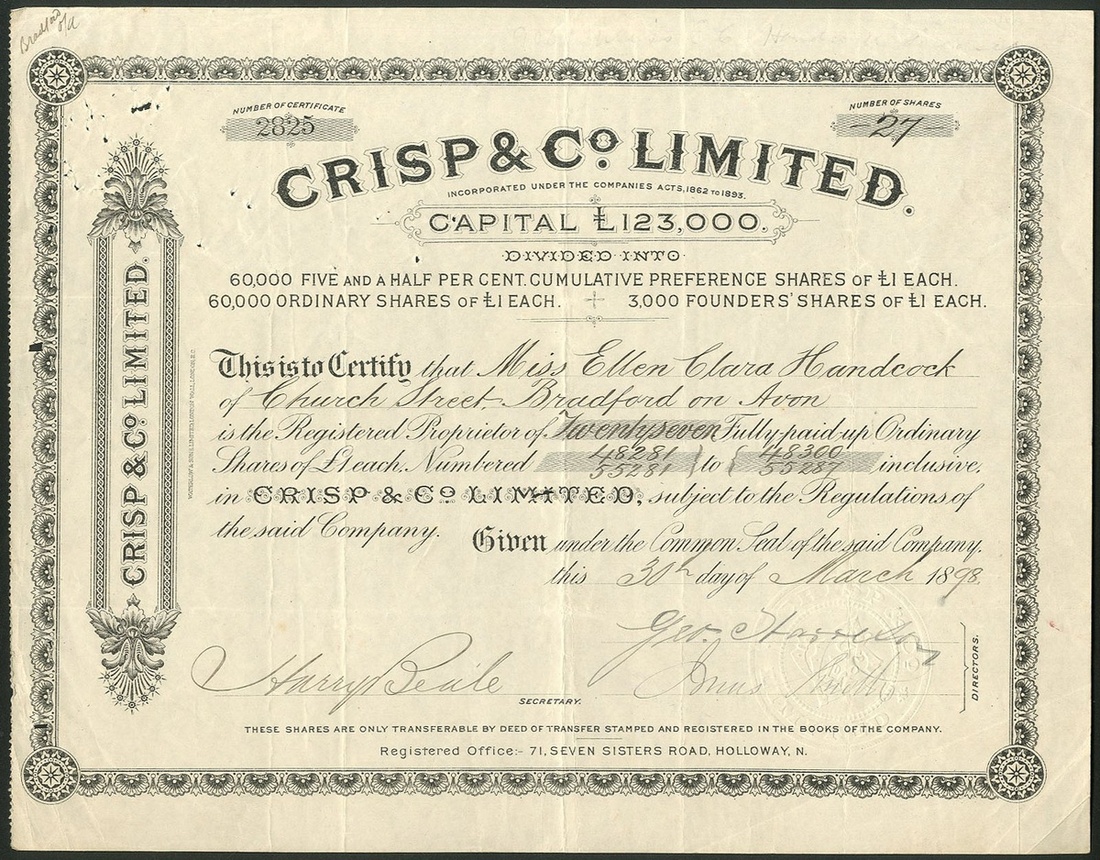 Bradford o/A
NUMBER OF CERTIFICATE
2825
NUMBER OF SHARES
27
CRISP & Co. LIMITED.
INCORPORATED UNDER THE COMPANIES ACTS, 1862 TO 1893.
CAPITAL £123,000.
DIVIDED INTO
60,000 FIVE AND A HALF PER CENT. CUMULATIVE PREFERENCE SHARES OF £1 EACH.
60,000 ORDINARY SHARES OF £1 EACH. 3,000 FOUNDERS' SHARES OF £1 EACH.
CRISP & Co. LIMITED.
This is to Certify that Miss Ellen Clara Handcock
of Church Street, Bradford on Avon
is the Registered Proprietor of Twentyseven Fully-paid up Ordinary
Shares of £1 each. Numbered 48281 to 48300
55281 55287 inclusive,
in CRISP & Co. LIMITED, subject to the Regulations of
the said Company. Given under the Common Seal of the said Company,
this 30th day of March 1898.
Geo. Harrison
Harry Beale
SECRETARY.
Smith
DIRECTORS.
THESE SHARES ARE ONLY TRANSFERABLE BY DEED OF TRANSFER STAMPED AND REGISTERED IN THE BOOKS OF THE COMPANY.
Registered Office:- 71, SEVEN SISTERS ROAD, HOLLOWAY, N.